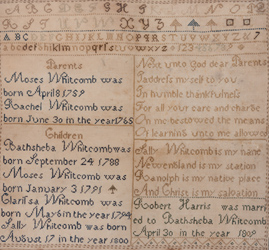 X Y Z
Parents
Moses Whitcomb was
born April 1759
Rachel Whitcomb was
born June 30 in the year 1765
Children
Bathsheba Whitcomb was
born September 24 1788
Moses Whitcomb was
born January 3 1791
Clarissa Whitcomb was
born May 6 in the year 1794
Sally Whitcomb was born
August 17 in the year 1800
Next unto God dear Parents
I address myself to you
In humble thankfulness
For all your care and charge
On me bestowed the means
Of learning unto me allowed
Sally Whitcomb is my name
Newengland is my station
Randolph is my native place
And Christ is my salvation
Robert Harris was marri
ed to Bathsheba Whitcomb
April 30 in the year 1809